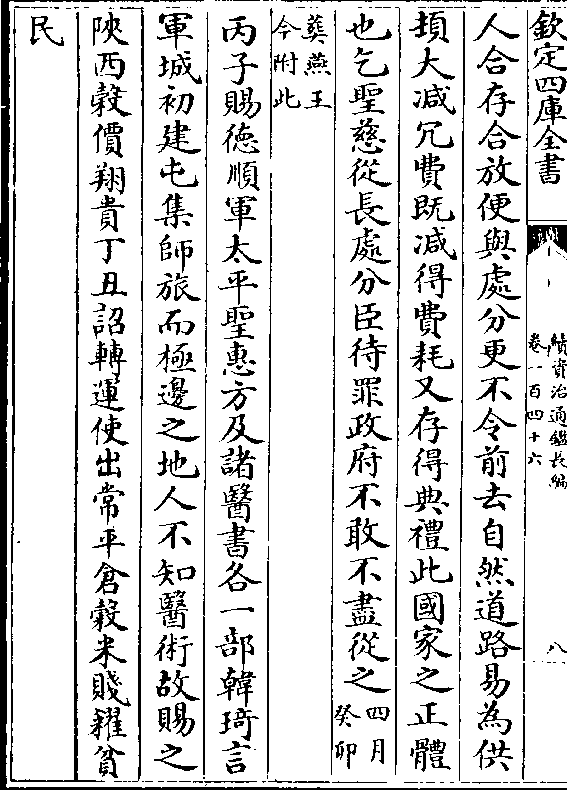 欽定四庫全書
續資治通鑑長編
卷一百四十六
八
人合存合放便與處分更不令前去自然道路易為供
頓大減冗費既減得費耗又存得典禮此國家之正體
也乞聖慈從長處分臣待罪政府不敢不盡從之四月癸卯
葬燕王今附此
丙子賜德順軍太平聖惠方及諸醫書各一部韓琦言
軍城初建屯集師旅而極邊之地人不知醫術故賜之
陜西榖價翔貴丁丑詔轉運使出常平倉榖米賤糶貧
民